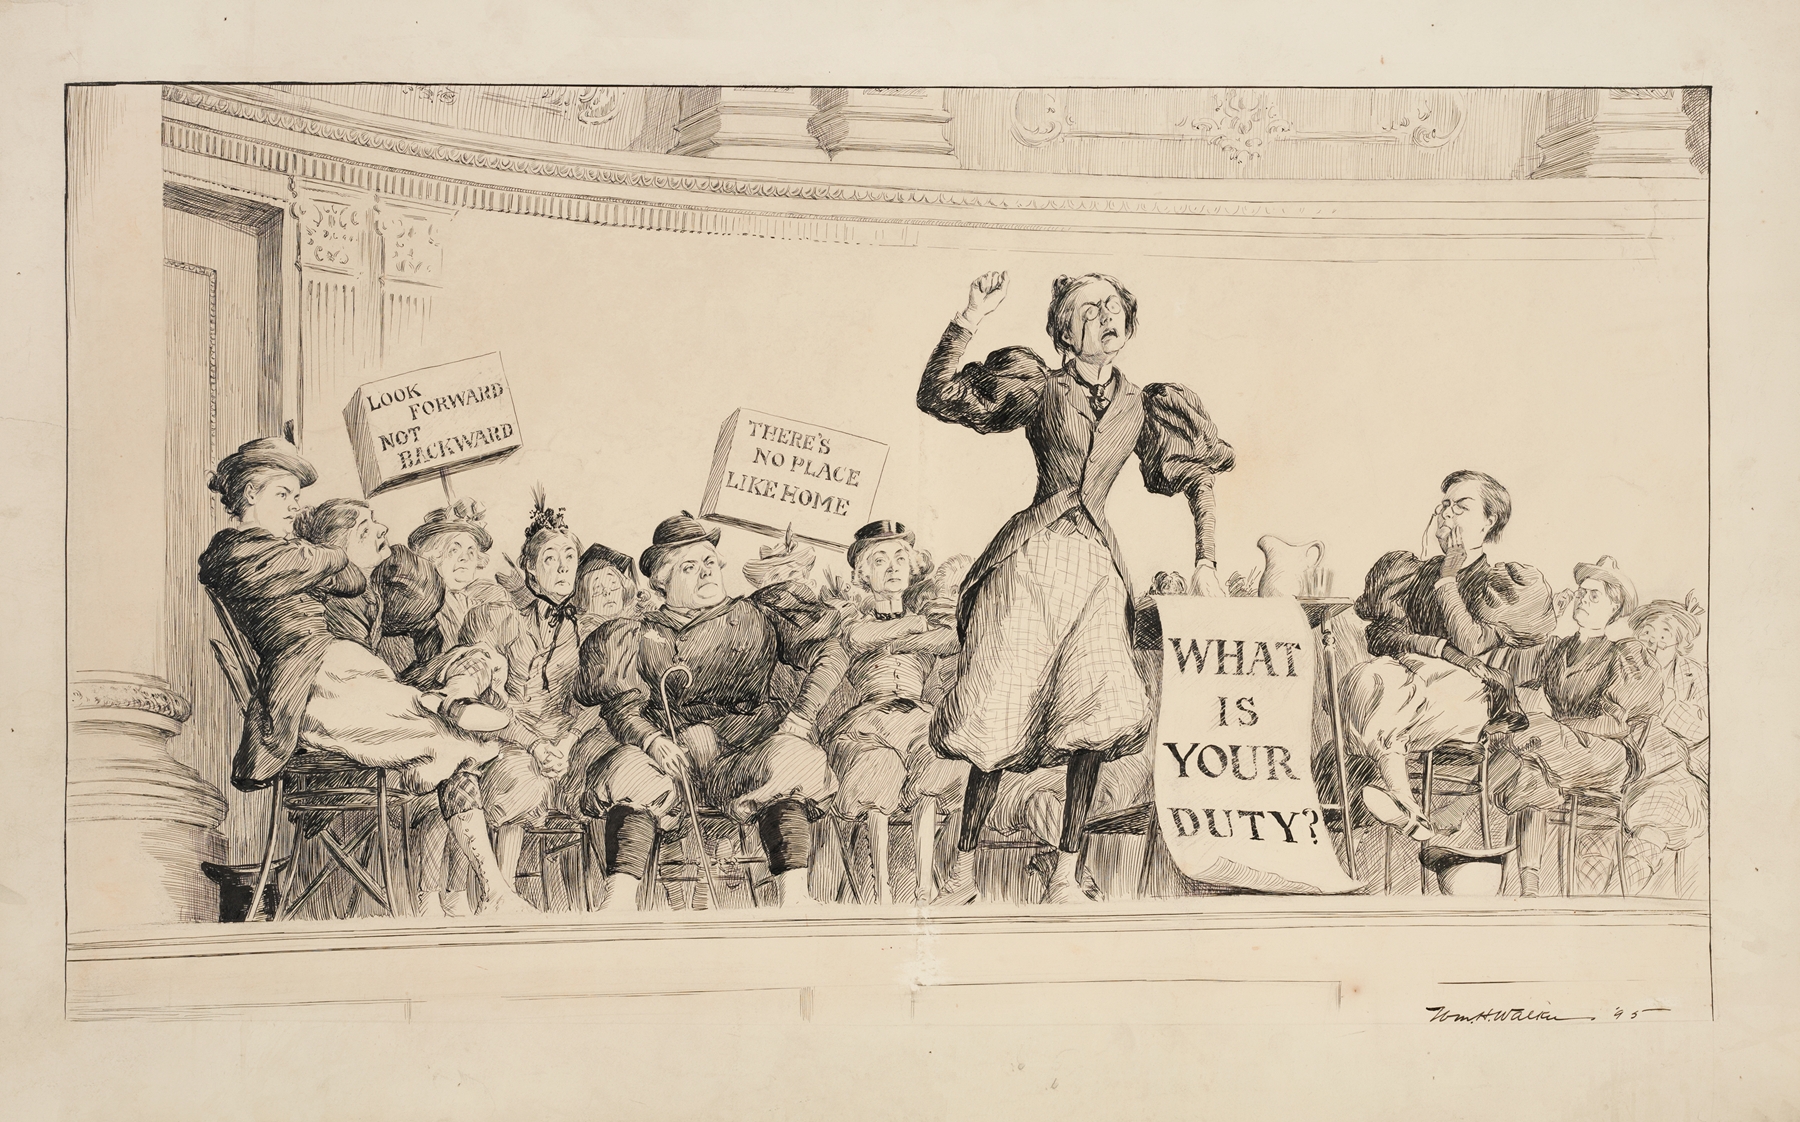 LOOK
FORWARD
NOT
BACKWARD
THERE'S
NO PLACE
LIKE HOME
WHAT
IS
YOUR
DUTY?
Wm. H. Walker '95